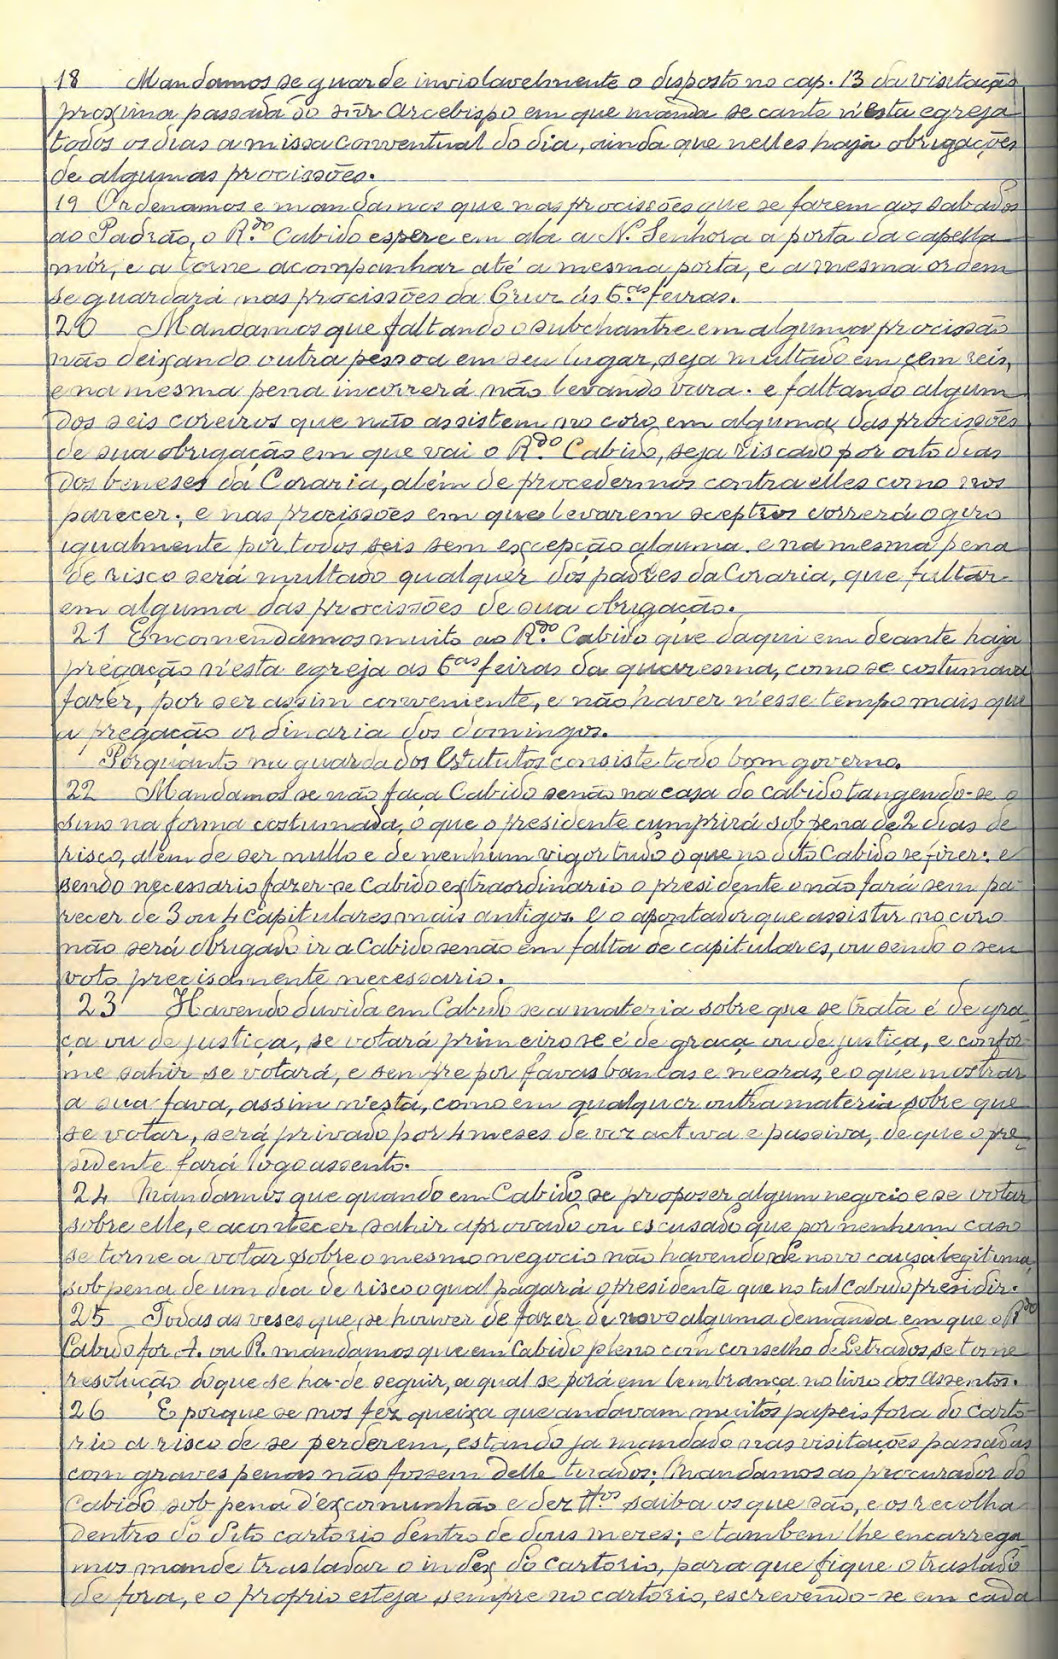 18 Mandamos se guarde inviolavelmente o disposto no cap. 13 da visitação
proxima passada do snr. Arcebispo em que manda se cante n'esta egreja
todos os dias a missa conventual do dia, ainda que nelles haja obrigações
de algumas procissões.
19 Ordenamos e mandamos que nas procissões que se fazem aos sabados
ao Padrão, o R.do Cabido espere em ala a N. Senhora á porta da capella
mór, e a torne acompanhar até a mesma porta, e a mesma ordem
se guardará nas procissões da Cruz ás 6.as feiras.
20 Mandamos que faltando o subchantre em alguma procissão
não deixando outra pessoa em seu lugar, seja multado em cem reis,
e na mesma pena incorrerá não levando vara. e faltando algum
dos seis coreiros que não assistem no coro, em alguma das procissões
de sua obrigação em que vai o R.do Cabido, seja riscado por oito dias
dos beneses da Coraria, além de procedermos contra elles como nos
parecer; e nas procissões em que levarem sceptros correrá o giro
igualmente por todos seis sem excepção alguma. e na mesma pena
de risco será multado qualquer dos padres da Coraria, que faltar
em alguma das procissões de sua obrigação.
21 Encomendamos muito ao R.do Cabido que daqui em deante haja
prégação n'esta egreja as 6as feiras da quaresma, como se costumava
fazer, por ser assim conveniente, e não haver n'esse tempo mais que
a pregação ordinaria dos domingos.
Porquanto na guarda dos Estatutos consiste todo bom governo.
22 Mandamos se não faça Cabido senão na casa do cabido tangendo-se o
sino na forma costumada, o que o presidente cumprirá sob pena de 2 dias de
risco, além de ser nullo e de nenhum vigor tudo o que no dito Cabido se fizer; e
sendo necessario fazer-se Cabido extraordinario o presidente o não fará sem pa-
recer de 3 ou 4 capitulares mais antigos. E o apontador que assistir no coro
não será obrigado ir a Cabido senão em falta de capitulares, ou sendo o seu
voto precisamente necessario.
23 Havendo duvida em Cabido se a materia sobre que se trata é de gra-
ça ou de justiça, se votará primeiro se é de graça ou de justiça, e confor-
me sahir se votará, e sempre por favas brancas e negras, e o que mostrar
a sua fava, assim n'esta, como em qualquer outra materia sobre que
se votar, será privado por 4 meses de voz activa e passiva, de que o pre-
sidente fará logo assento.
24 Mandamos que quando em Cabido se proposer algum negocio e se votar
sobre elle, e acontecer sahir aprovado ou escusado que por nenhum caso
se torne a votar sobre o mesmo negocio não havendo de novo causa legitima,
sob pena de um dia de risco o qual pagará o presidente que no tal Cabido presidir.
25 Todas as veses que se houver de fazer de novo alguma demanda em que o R.do
Cabido for A. ou R. mandamos que em Cabido pleno com conselho de Letrados, se tome
resolução do que se ha-de seguir, a qual se porá em lembrança no livro dos Assentos.
26 E porque se nos fez queixa que andavam muitos papeis fora do carto-
rio a risco de se perderem, estando ja mandado nas visitações passadas
com graves penas não fossem delle tirados; Mandamos ao procurador do
Cabido sob pena d'excomunhão e dez ttos saiba os que são, e os recolha
dentro do dito cartorio dentro de dous mezes; e tambem lhe encarrega-
mos mande trasladar o index do cartorio, para que fique o traslado
de fora, e o proprio esteja sempre no cartório, escrevendo-se em cada